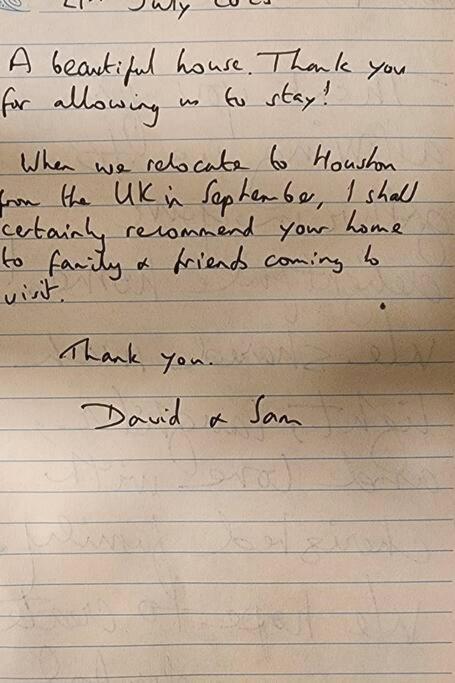 July
A beautiful house. Thank you
for allowing us to stay!
When we relocate to Houston
from the UK in September, I shall
certainly recommend your home
to family & friends coming to
visit.
Thank you.
David & Sam